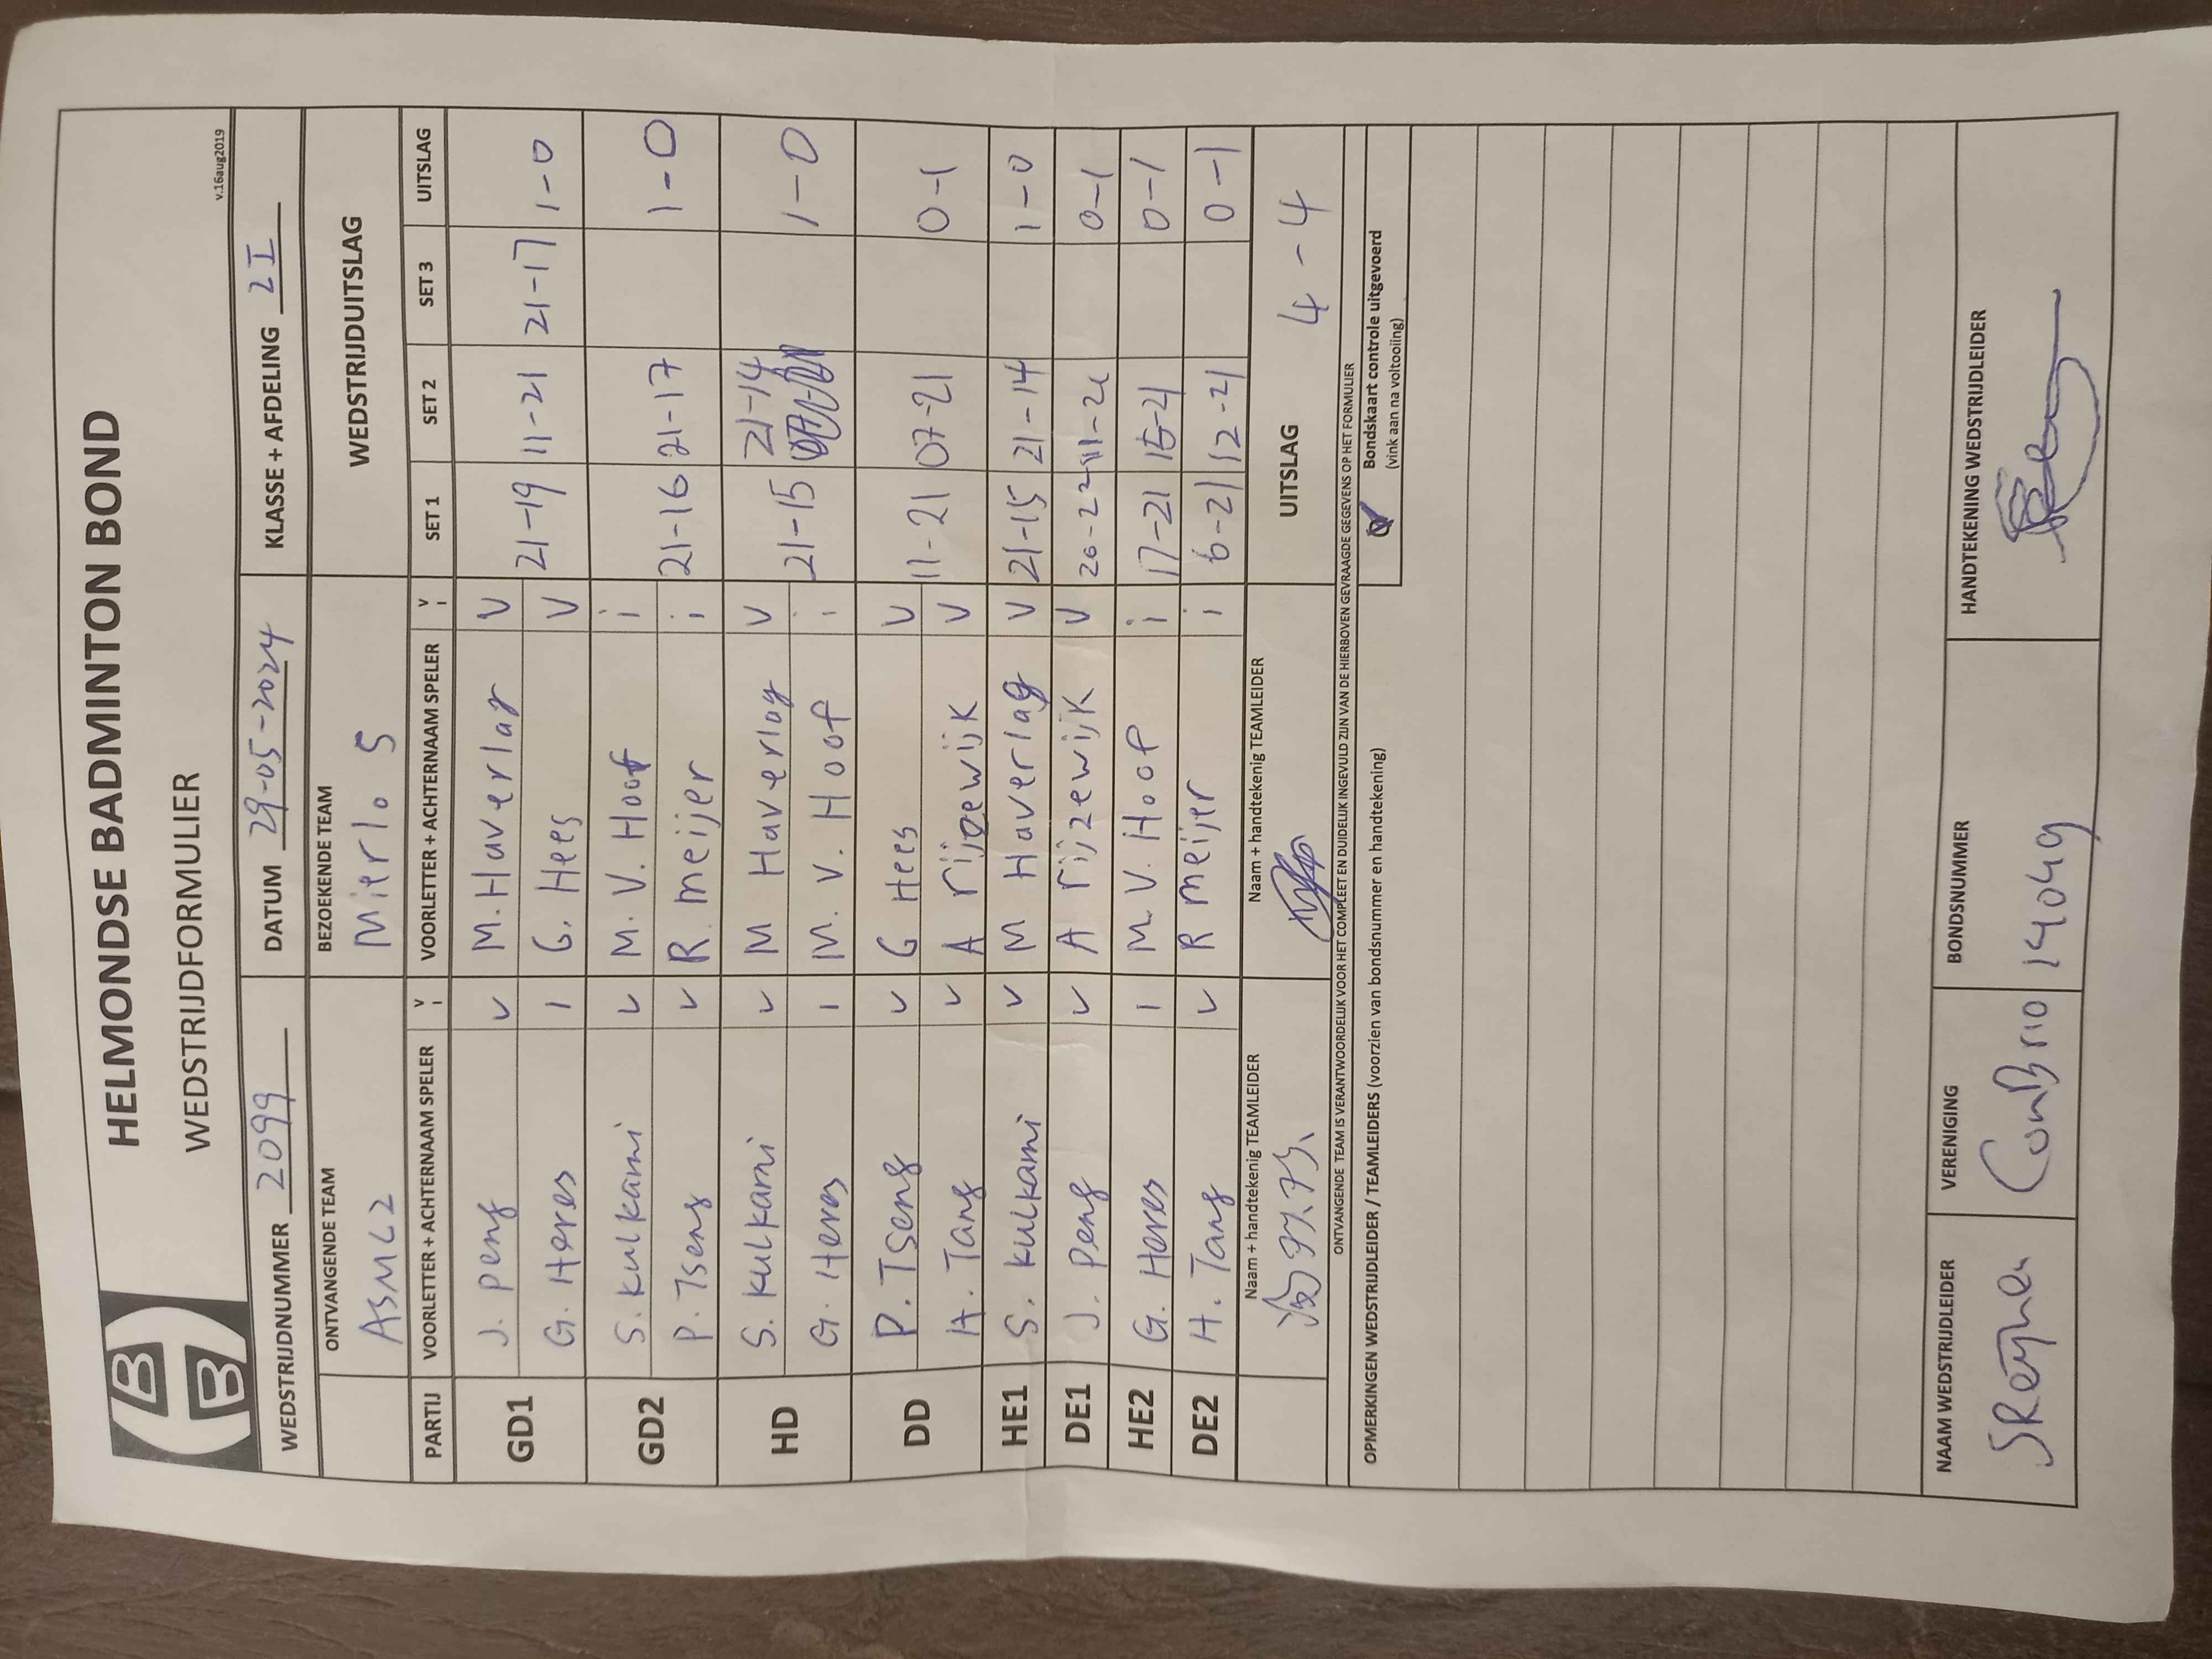 HELMONDSE BADMINTON BOND
WEDSTRIJDFORMULIER
v.16aug2019
WEDSTRIJDNUMMER 2099 DATUM 29-05-2024 KLASSE + AFDELING 2I
ONTVANGENDE TEAM BEZOEKENDE TEAM WEDSTRIJDUITSLAG
ASML2 Mierlo 5
PARTIJ VOORLETTER + ACHTERNAAM SPELER V I VOORLETTER + ACHTERNAAM SPELER V I SET 1 SET 2 SET 3 UITSLAG
GD1 J. Peng V M. Haverlag V
G. Heres I G. Hees V 21-19 11-21 21-17 1-0
GD2 S. Kulkarni V M. V. Hoof i
P. Tseng V R. Meijer i 21-16 21-17 1-0
HD S. Kulkarni V M Haverlag V 21-14
G. Heres I M. V. Hoof i 21-15 1-0
DD P. Tseng V G Hees V
H. Tang V A rijzewijk V 11-21 07-21 0-1
HE1 S. Kulkarni V M Haverlag V 21-15 21-14 1-0
DE1 J. Peng V A rijzewijk V 20-22 11-21 0-1
HE2 G. Heres I M. V. Hoof i 17-21 15-21 0-1
DE2 H. Tang V R Meijer i 6-21 12-21 0-1
Naam + handtekenig TEAMLEIDER Naam + handtekenig TEAMLEIDER UITSLAG 4-4
ONTVANGENDE TEAM IS VERANTWOORDELIJK VOOR HET COMPLEET EN DUIDELIJK INGEVULD ZIJN VAN DE HIERBOVEN GEVRAAGDE GEGEVENS OP HET FORMULIER
OPMERKINGEN WEDSTRIJDLEIDER / TEAMLEIDERS (voorzien van bondsnummer en handtekening) Bondskaart controle uitgevoerd
(vink aan na voltooiing)
NAAM WEDSTRIJDLEIDER VERENIGING BONDSNUMMER HANDTEKENING WEDSTRIJDLEIDER
ConBrio 14049